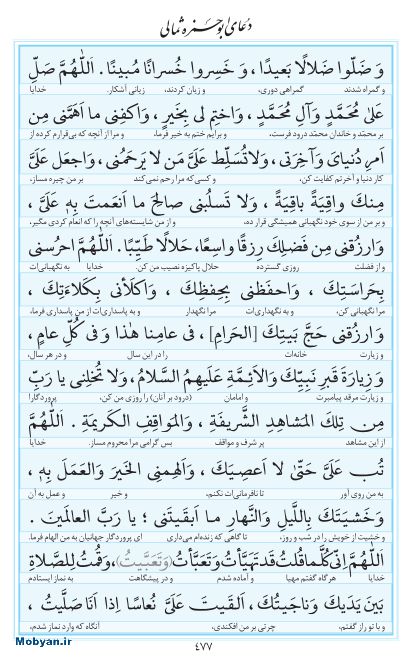 دعای ابوحمزه ثمالی
وَ ضَلّوا ضَلالًا بَعیدًا، وَ خَسِروا خُسرانًا مُبینًا. اَللّٰهُمَّ صَلِّ
و گمراه شدند گمراهی دوری، و زیان کردند، زیانی آشکار. خدایا
عَلیٰ مُحَمَّدٍ وَآلِ مُحَمَّدٍ، وَاختِم لی بِخَیرٍ، وَاکفِنی ما اَهَمَّنی مِن
بر محمّد و خاندان محمّد درود فرست، و برایم ختم به خیر فرما، و مرا از آنچه که بی‌قرارم کرده از
اَمرِ دُنیایَ وَآخِرَتی، وَلاتُسَلِّط عَلَیَّ مَن لا یَرحَمُنی، وَاجعَل عَلَیَّ
کار دنیا و آخرتم کفایت کن، و کسی‌که مرا رحم نمی‌کند بر من چیره مساز،
مِنكَ واقِیَةً باقِیَةً، وَ لا تَسلُبنی صالِحَ ما اَنعَمتَ بِهِ عَلَیَّ،
و بر من از سوی خود نگهبانی همیشگی قرار ده، و از من شایسته‌های آنچه را که انعام کردی مگیر،
وَارزُقنی مِن فَضلِكَ رِزقًا واسِعًا، حَلالًا طَیِّبًا. اَللّٰهُمَّ احرُسنی
و از فضلت روزی گسترده حلال پاکیزه نصیب من کن. خدایا به نگهبانی‌ات
بِحَراسَتِكَ، وَاحفَظنی بِحِفظِكَ، وَاکلَأنی بِکِلاءَتِكَ،
مرا نگهبانی کن، و به نگهداری‌ات مرا نگهدار و به پاسداری‌ات از من پاسداری فرما،
وَارزُقنی حَجَّ بَیتِكَ [الحَرامِ]، فی عامِنا هٰذا وَفی کُلِّ عامٍ،
و زیارت خانه‌ات را در این سال و در هر سال،
وَزِیارَةَ قَبرِ نَبِیِّكَ وَالاَئِمَّةِ عَلَیهِمُ السَّلامُ، وَلا تُخلِنی یا رَبِّ
و زیارت مرقد پیامبرت و امامان (درود بر آنان) را روزی من کن، پروردگارا
مِن تِلكَ المَشاهِدِ الشَّریفَةِ، وَالمَواقِفِ الکَریمَةِ. اَللّٰهُمَّ
از این مشاهد پر شرف و مواقف بس گرامی مرا محروم مساز. خدایا
تُب عَلَیَّ حَتّیٰ لا اَعصِیَكَ، وَاَلهِمنِی الخَیرَ وَالعَمَلَ بِهِ،
به من روی آور تا نافرمانی‌ات نکنم، و خیر و عمل به آن
وَخَشیَتَكَ بِاللَّیلِ وَالنَّهارِ ما اَبقَیتَنی؛ یا رَبَّ العالَمینَ.
و خشیت از خویش را در شب و روز، تا گاهی که زنده‌ام می‌داری ای پروردگار جهانیان به من الهام فرما.
اَللّٰهُمَّ اِنّی کُلَّما قُلتُ قَد تَهَیَّأتُ وَتَعَبَّأتُ (وَتَعَبَّیتُ)، وَقُمتُ لِلصَّلاةِ
خدایا هر گاه گفتم مهیا و آماده شدم و در پیشگاهت به نماز ایستادم
بَینَ یَدَیكَ وَناجَیتُكَ، اَلقَیتَ عَلَیَّ نُعاسًا اِذا اَنَا صَلَّیتُ،
و با تو راز گفتم، چرتی بر من افکندی، آنگاه که وارد نماز شدم،
۴۷۷
Mobyan.ir